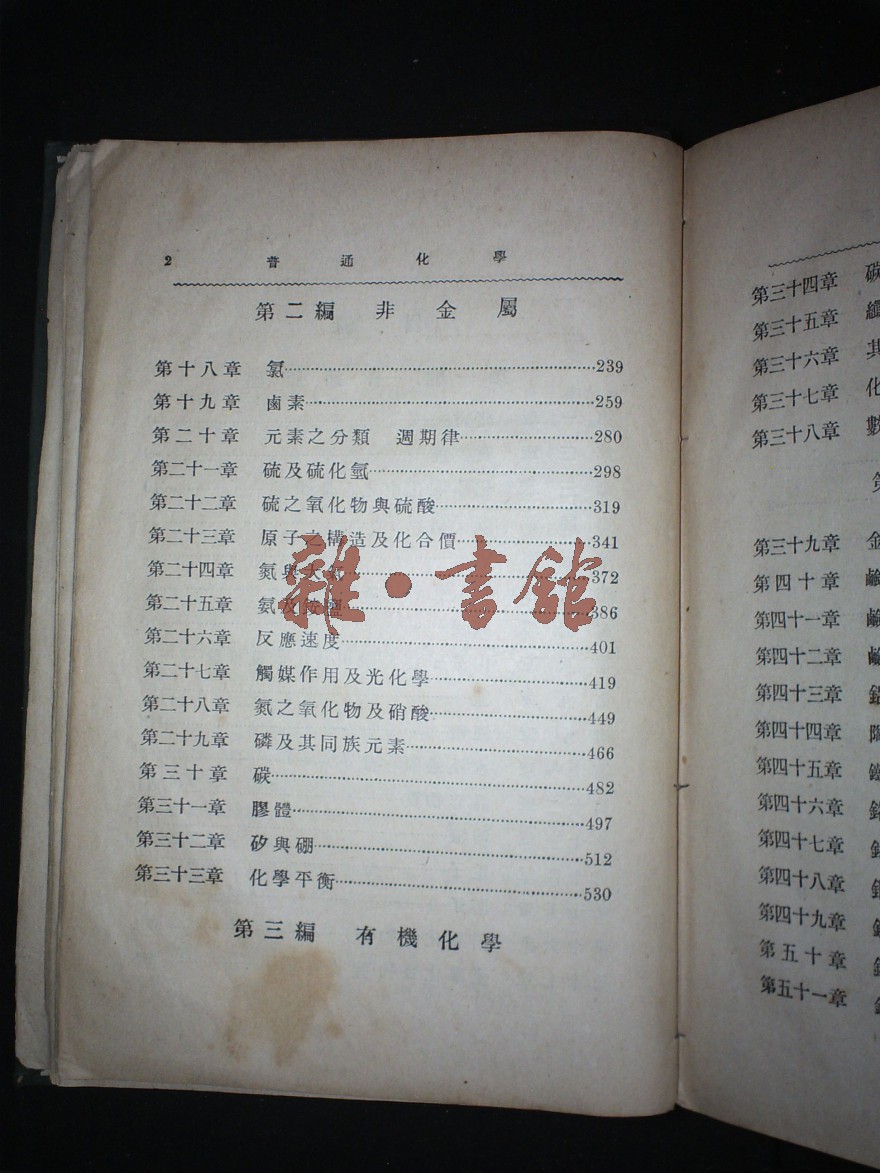 2 普通化學
第二編 非金屬
第十八章 氯 239
第十九章 鹵素 259
第二十章 元素之分類 週期律 280
第二十一章 硫及硫化氫 298
第二十二章 硫之氧化物與硫酸 319
第二十三章 原子之構造及化合價 341
第二十四章 氮與大氣 372
第二十五章 氨及銨鹽 386
第二十六章 反應速度 401
第二十七章 觸媒作用及光化學 419
第二十八章 氮之氧化物及硝酸 449
第二十九章 磷及其同族元素 466
第三十章 碳 482
第三十一章 膠體 497
第三十二章 矽與硼 512
第三十三章 化學平衡 530
第三編 有機化學
雜·書館
第三十四章 碳
第三十五章 纖
第三十六章 其
第三十七章 化
第三十八章 數
第
第三十九章 金
第四十章 鹼
第四十一章 鹼
第四十二章 鹼
第四十三章
第四十四章 陶
第四十五章
第四十六章
第四十七章
第四十八章
第四十九章
第五十章
第五十一章